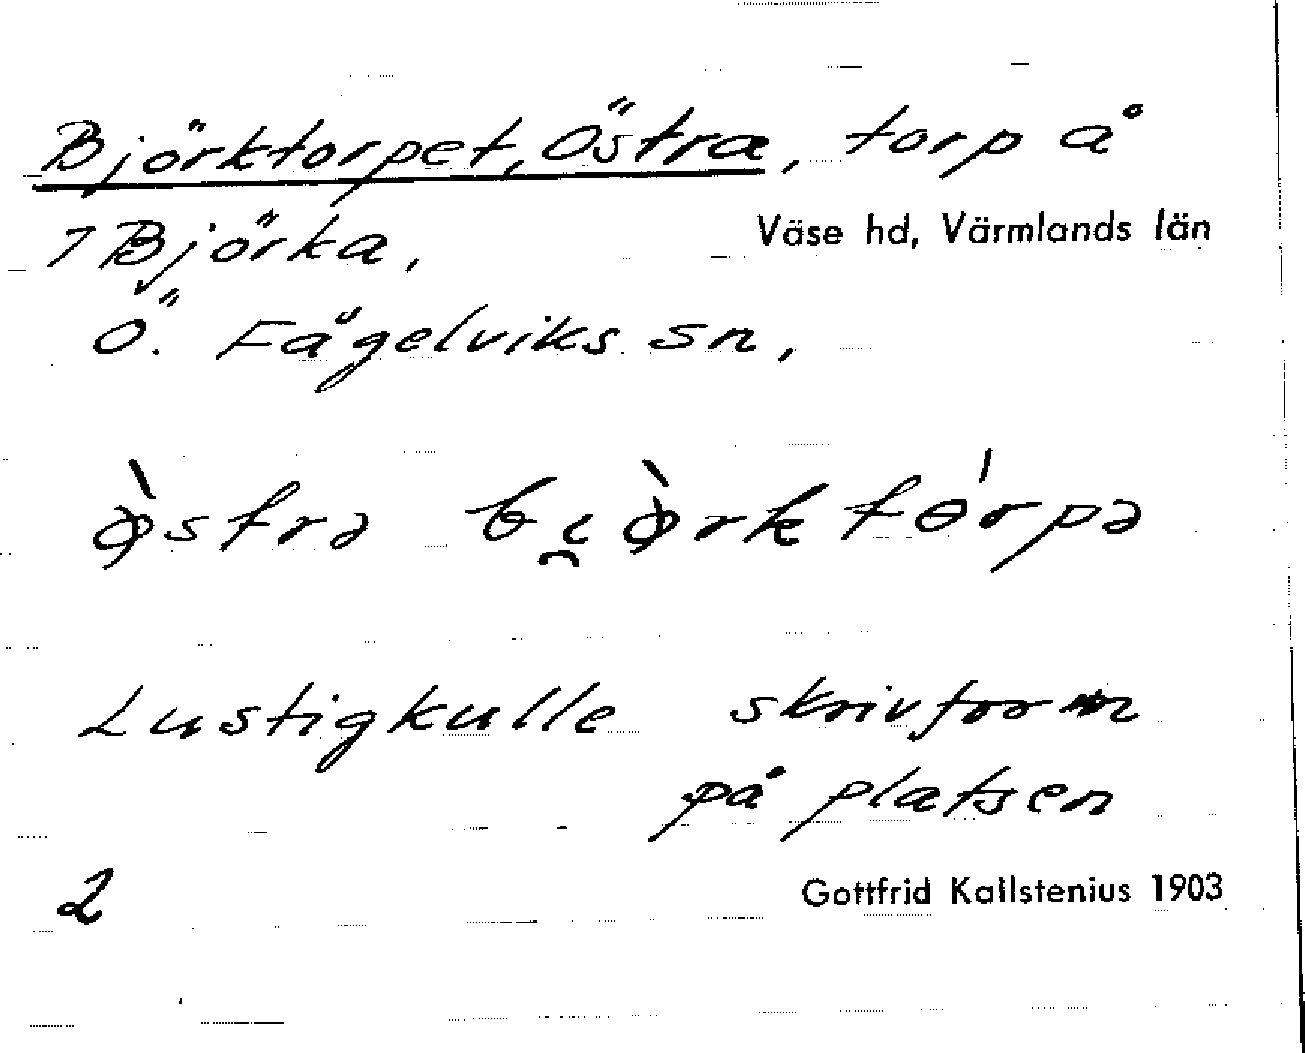 Björktorpet, Östra, torp å
7 Björka,
Väse hd, Värmlands län
Ö. Fågelviks sn,
Lustigkulle skrivform
på platsen
2
Gottfrid Kallstenius 1903